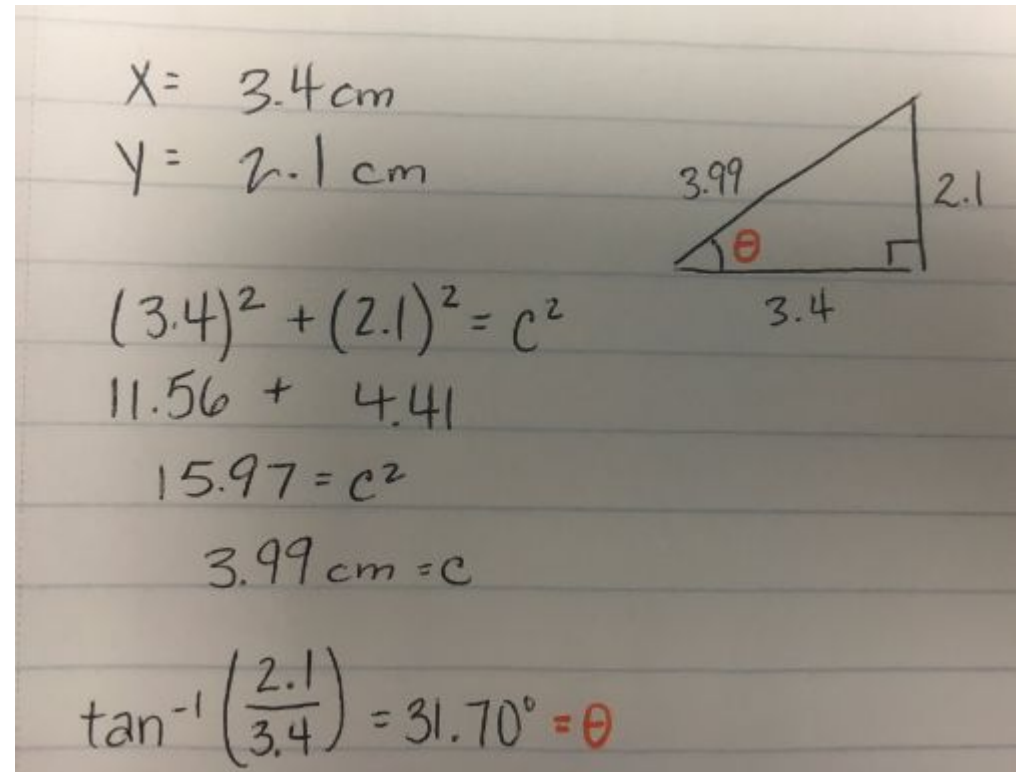 X= 3.4 cm
Y= 2.1 cm
3.99
2.1
θ
3.4
(3.4)² + (2.1)² = C²
11.56 + 4.41
15.97 = C²
3.99 cm = C
tan⁻¹ (2.1/3.4) = 31.70° = θ